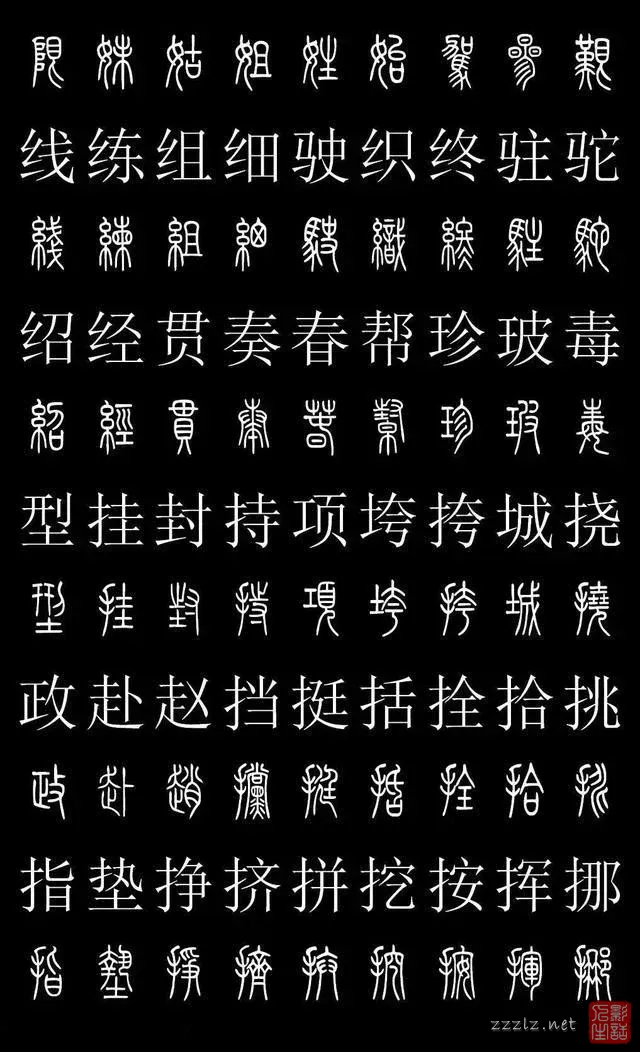 限 妹 姑 姐 姓 始 駕 參 艱
线 练 组 细 驶 织 终 驻 驼
綫 練 組 細 駛 織 終 駐 駝
绍 经 贯 奏 春 帮 珍 玻 毒
紹 經 貫 奏 春 幫 珍 玻 毒
型 挂 封 持 项 垮 挎 城 挠
型 挂 封 持 項 垮 挎 城 撓
政 赴 赵 挡 挺 括 拴 拾 挑
政 赴 趙 攩 挺 括 拴 拾 挑
指 垫 挣 挤 拼 挖 按 挥 挪
指 墊 擠 拼 挖 按 揮 挪
zzzlz.net